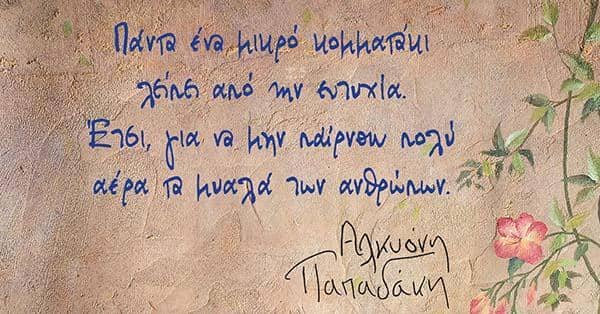 Πάντα ένα μικρό κομματάκι
λείπει από την ευτυχία.
Έτσι, για να μην παίρνουν πολύ
αέρα τα μυαλά των ανθρώπων.
Αλκυόνη
Παπαδάκη